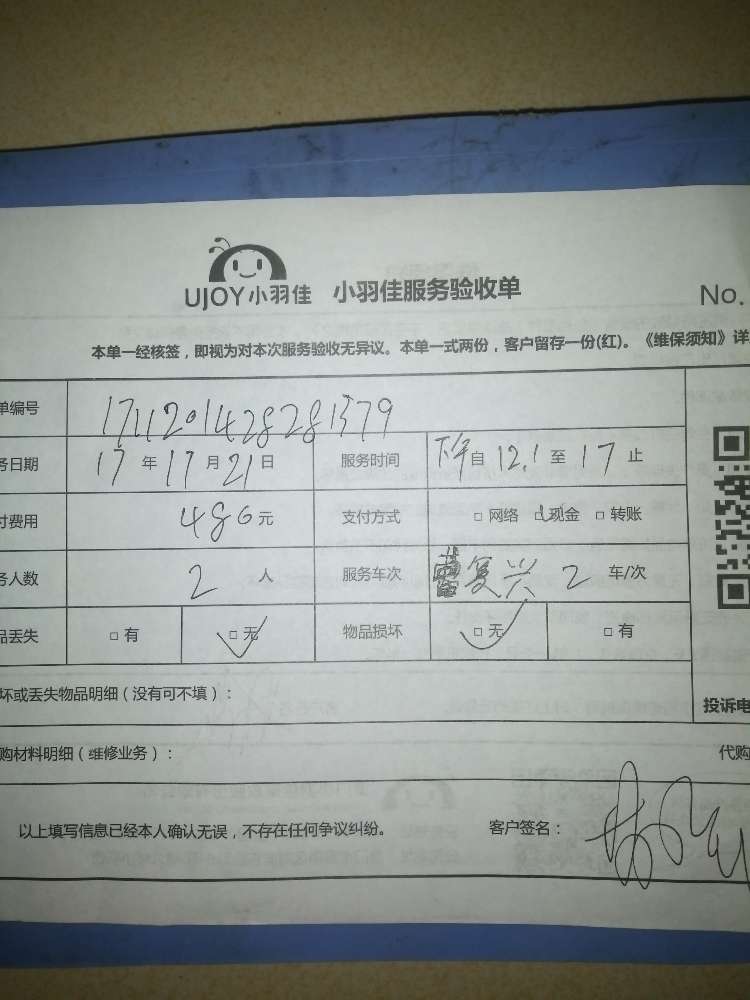 UJOY小羽佳 小羽佳服务验收单
No.
本单一经核签，即视为对本次服务验收无异议。本单一式两份，客户留存一份(红)。《维保须知》详
单编号 1711201428281579
务日期 17年 11月 21日 服务时间 下午自 12.1 至 17 止
付费用 486元 支付方式 □ 网络 □ 现金 □ 转账
务人数 2 人 服务车次 复兴 2 车/次
品丢失 □ 有 □ 无 物品损坏 □ 无 □ 有
坏或丢失物品明细（没有可不填）：
投诉电
购材料明细（维修业务）： 代购
以上填写信息已经本人确认无误，不存在任何争议纠纷。 客户签名：